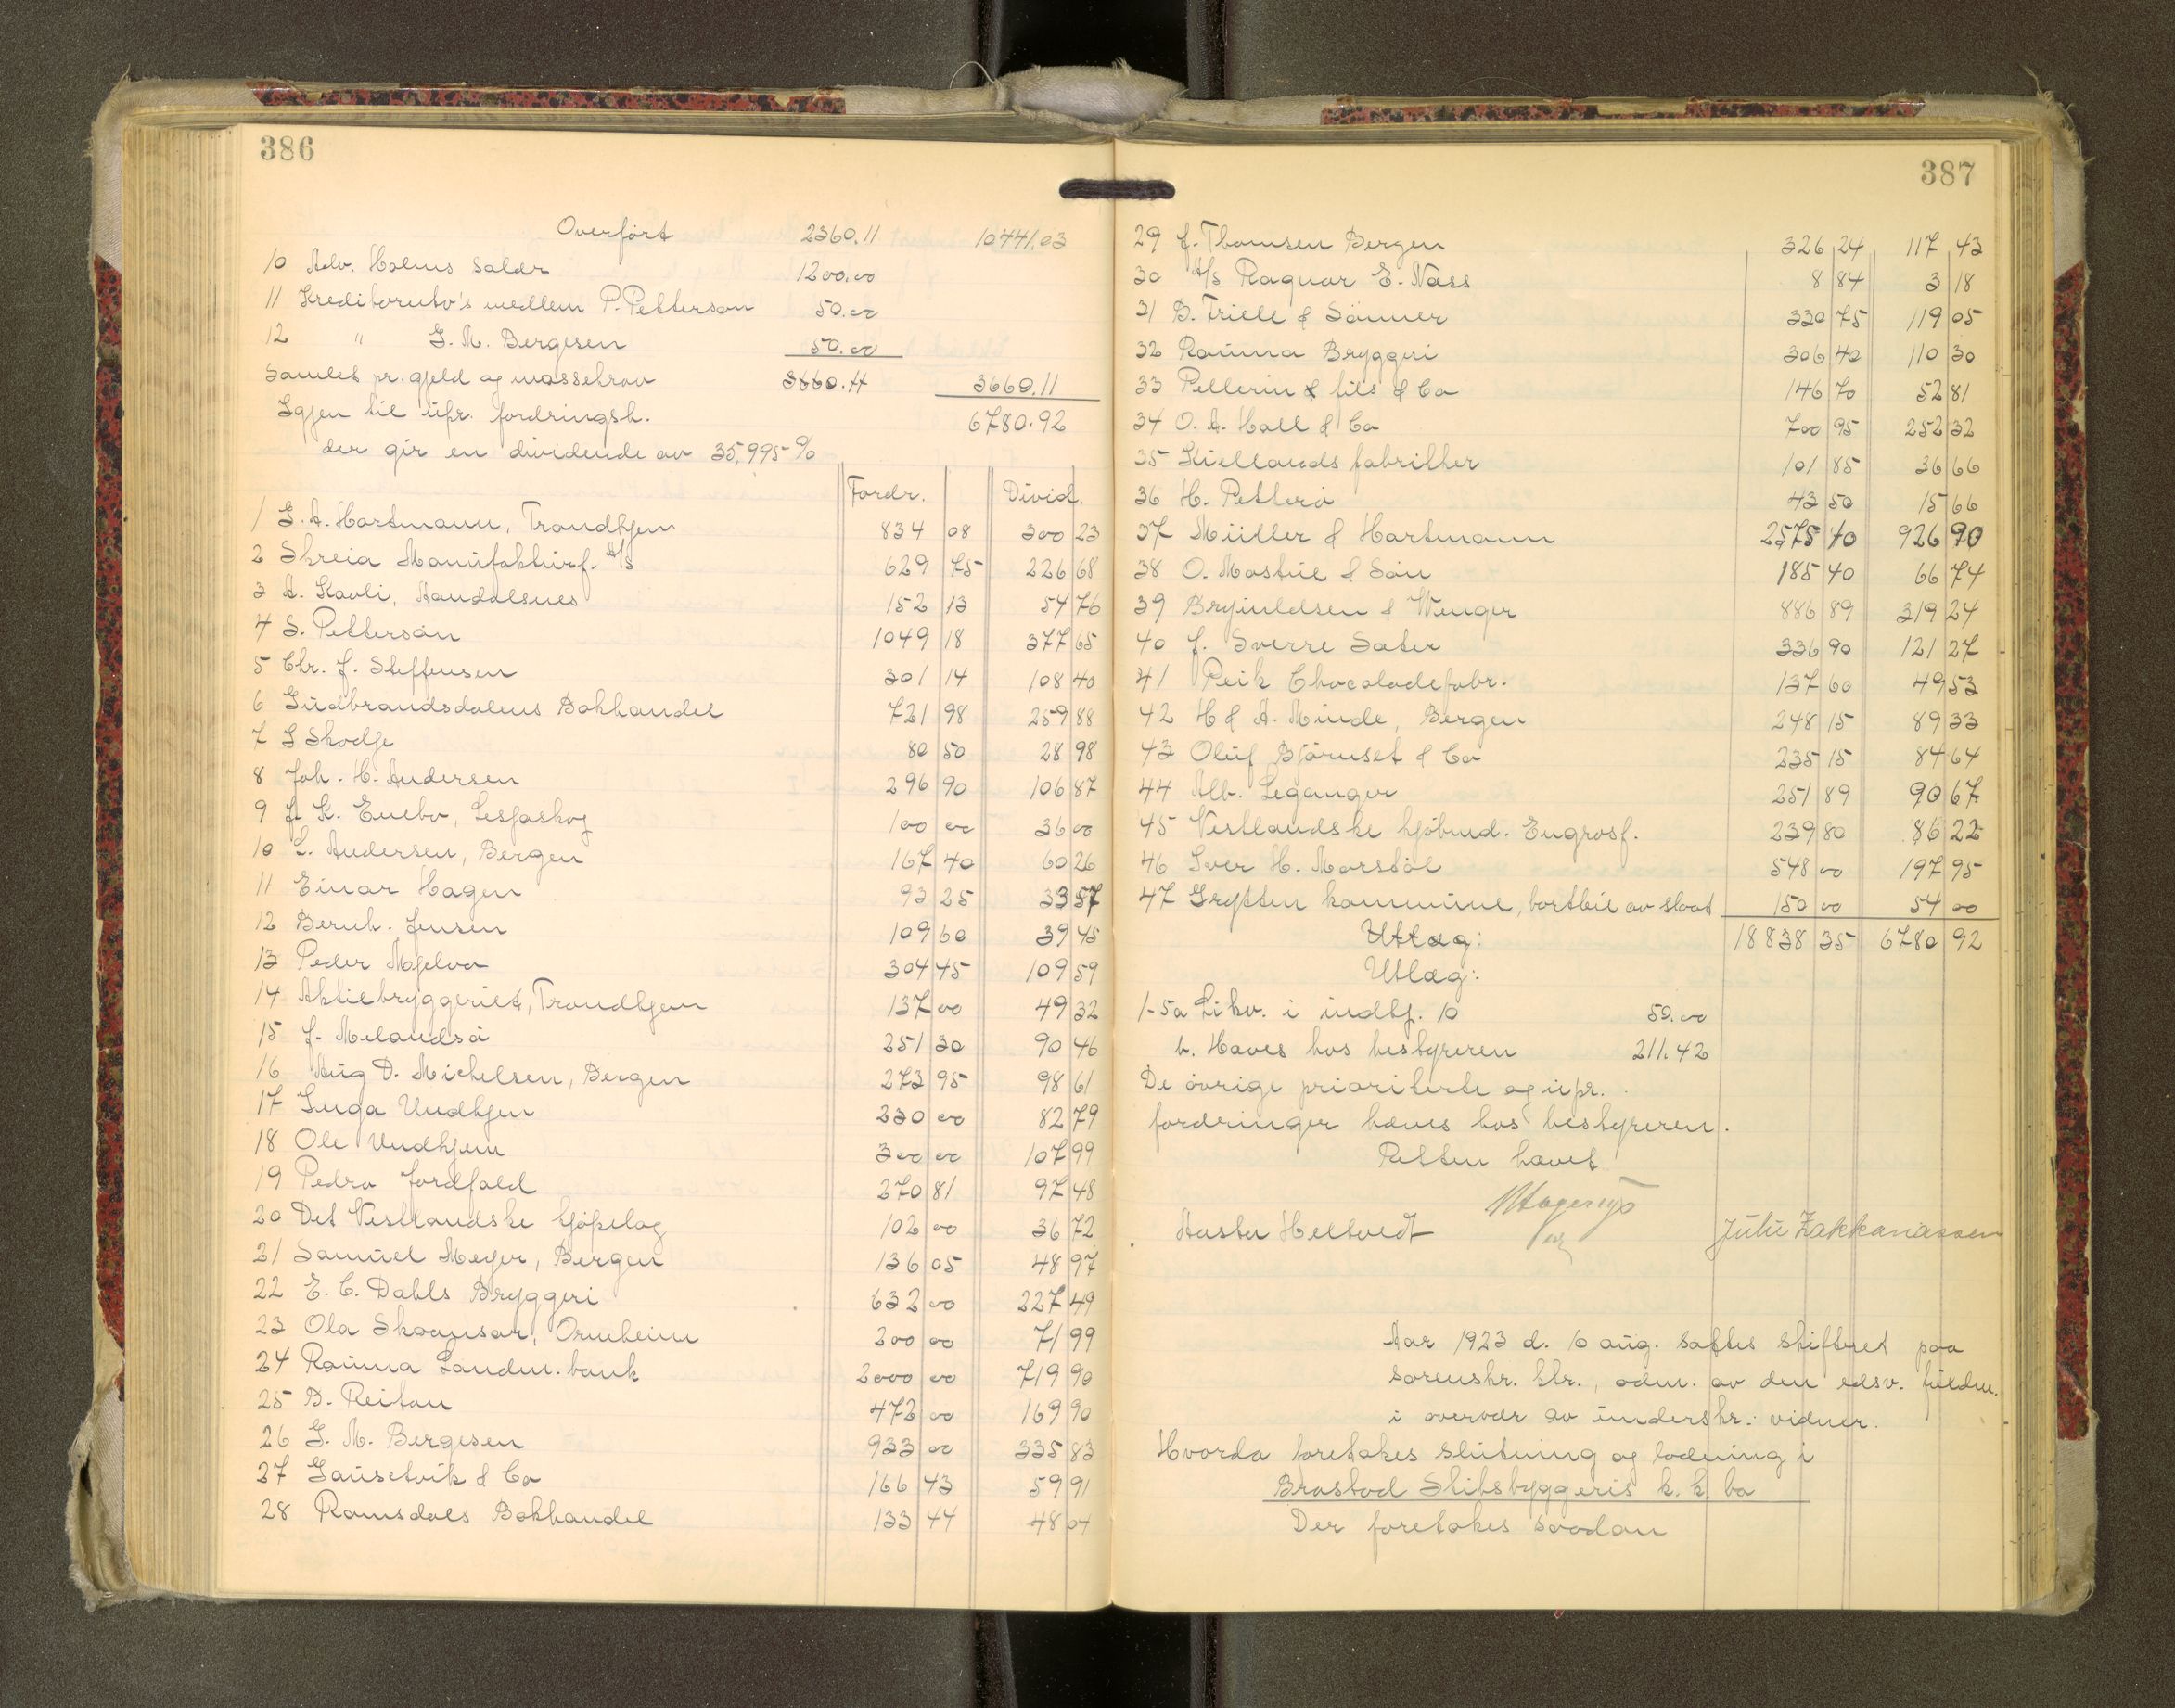 386
Overført 2360.11 10441.03
10 Adv. Holms Salær 1200.00
11 Kreditorutv's medlem P. Petterson 50.00
12 " G. M. Bergesen 50.00
Samlet pr. gjeld og massekrav 3660.11 3660.11
Igjen til upr. fordringsh. 6780.92
der gir en dividende av 35,995 %
Fordr. Divid.
1 G. A. Hartmann, Trondhjem 834 08 300 23
2 Skreia Manufakturf. A/S 629 75 226 68
3 A. Kavli, Aandalsnes 152 13 54 76
4 S. Pettersön 1049 18 377 65
5 Chr. J. Steffensen 301 14 108 40
6 Gudbrandsdalens Bokhandel 721 98 259 88
7 G Skodje 80 50 28 98
8 Joh. H. Andersen 296 90 106 87
9 K. Enebo, Lesjaskog 100 00 36 00
10 L. Andersen, Bergen 167 40 60 26
11 Einar Hagen 93 25 33 57
12 Bernh. Jensen 109 60 39 45
13 Peder Mjelva 304 45 109 59
14 Aktiebryggeriet, Trondhjem 137 00 49 32
15 J. Melandsö 251 30 90 46
16 Aug D. Michelsen, Bergen 273 95 98 61
17 Inga Undhjem 230 00 82 79
18 Ole Undhjem 300 00 107 99
19 Pedro Jordfald 270 81 97 48
20 Det Vestlandske kjöpelag 102 00 36 72
21 Samuel Meyer, Bergen 136 05 48 97
22 E. C. Dahls Bryggeri 632 00 227 49
23 Ola Skogsar, Ormheim 200 00 71 99
24 Rauma Landm. bank 2000 00 719 90
25 D. Reitan 472 00 169 90
26 G. M. Bergesen 933 00 335 83
27 Gausetvik & Co 166 43 59 91
28 Romsdals Bokhandel 133 44 48 04
387
29 J. Thomsen Bergen 326 24 117 43
30 A/S Ragnar E. Næss 8 84 3 18
31 B. Friele & Sönner 330 75 119 05
32 Rauma Bryggeri 306 40 110 30
33 Pellerin & fils & Co 146 70 52 81
34 O. A. Hall & Co 700 95 252 32
35 Kiellands fabrikker 101 85 36 66
36 H. Petterö 43 50 15 66
37 Müller & Hartmann 2575 40 926 90
38 O. Mostue & Sön 185 40 66 74
39 Brynildsen & Wenger 886 89 319 24
40 J. Sverre Sæter 336 90 121 27
41 Peik Chocoladefabr. 137 60 49 53
42 H & A. Minde, Bergen 248 15 89 33
43 Oluf Björnset & Co 235 15 84 64
44 Alb. Leganger 251 89 90 67
45 Vestlandske kjöbmd. Engrosf. 239 80 86 22
46 Iver H. Morstöl 548 00 197 95
47 Grytten kommune, bortbil av skat 150 00 54 00
Utlæg: 18838 35 6780 92
Utlæg:
1-5a Likv. i indtj. 10 50.00
b. Haves hos bestyreren 211.42
De övrige prioriterte og upr.
fordringer hæves hos bestyreren.
Retten hævet
Aasta Heltvedt Julie Zakkariassen
Aar 1923 d. 10 aug. sattes skifteret paa
sorenskr. ktr., adm. av den edsv. fuldm.
i overvær av underskr. vidner.
Hvorda foretokes slutning og lodning i
Brastad Skibsbyggeris k. k. bo
Der foretokes saadan